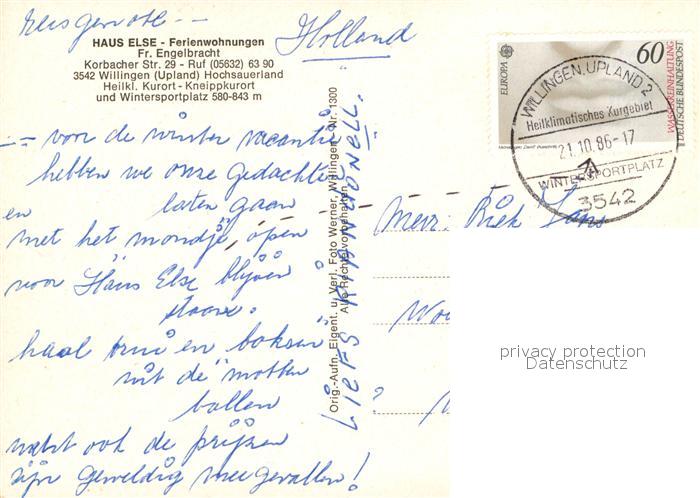 Reisgenote --
Holland
HAUS ELSE - Ferienwohnungen
Fr. Engelbracht
Korbacher Str. 29 - Ruf (05632) 63 90
3542 Willingen (Upland) Hochsauerland
Heilkl. Kurort - Kneippkurort
und Wintersportplatz 580-843 m
-- von de winter vacantie
hebben we onze gedachte
en laten gaan
met het mondje open
voor Haus Else blijven
staan.
haal trui en boksen
uit de "motten
ballen
want ook de prijzen
zijn geweldig meegevallen!
LIEFS RIA N RONELL.
Orig.-Aufn., Eigent. u. Verl. Foto Werner, Willingen - Nr. 1300
Alle Rechte vorbehalten
EUROPA
60
WASSERREINHALTUNG
DEUTSCHE BUNDESPOST
WILLINGEN, UPLAND 2
Heilklimatisches Kurgebiet
21.10.86-17
WINTERSPORTPLATZ
3542
Mevr. Riek
privacy protection
Datenschutz